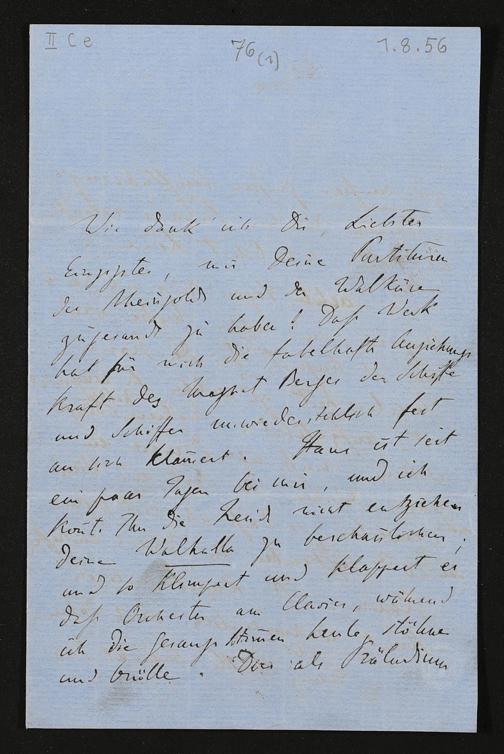 II C e
76 (1)
1.8.56
Wie dank' ich Dir, Liebster
Einzigster, mir Deine Partituren
des Rheingolds und der Walküre
zugesandt zu haben! Dass Werk
hat für mich die fabelhafte Anziehungs
Kraft des Magnet Berges der Schiffe
und Schiffer unwiderstehlich fest
an sich klamert. Hans ist seit
ein paar Tagen bei mir, und ich
konte Ihm die Freude nicht entziehen
Deine Walhalla zu beschaulichen;
und so klimpert und klappert er
dass Orchester am Clavier, während
ich die Gesangs Stimmen heule, stöhne
und brülle. Dies als Präludium